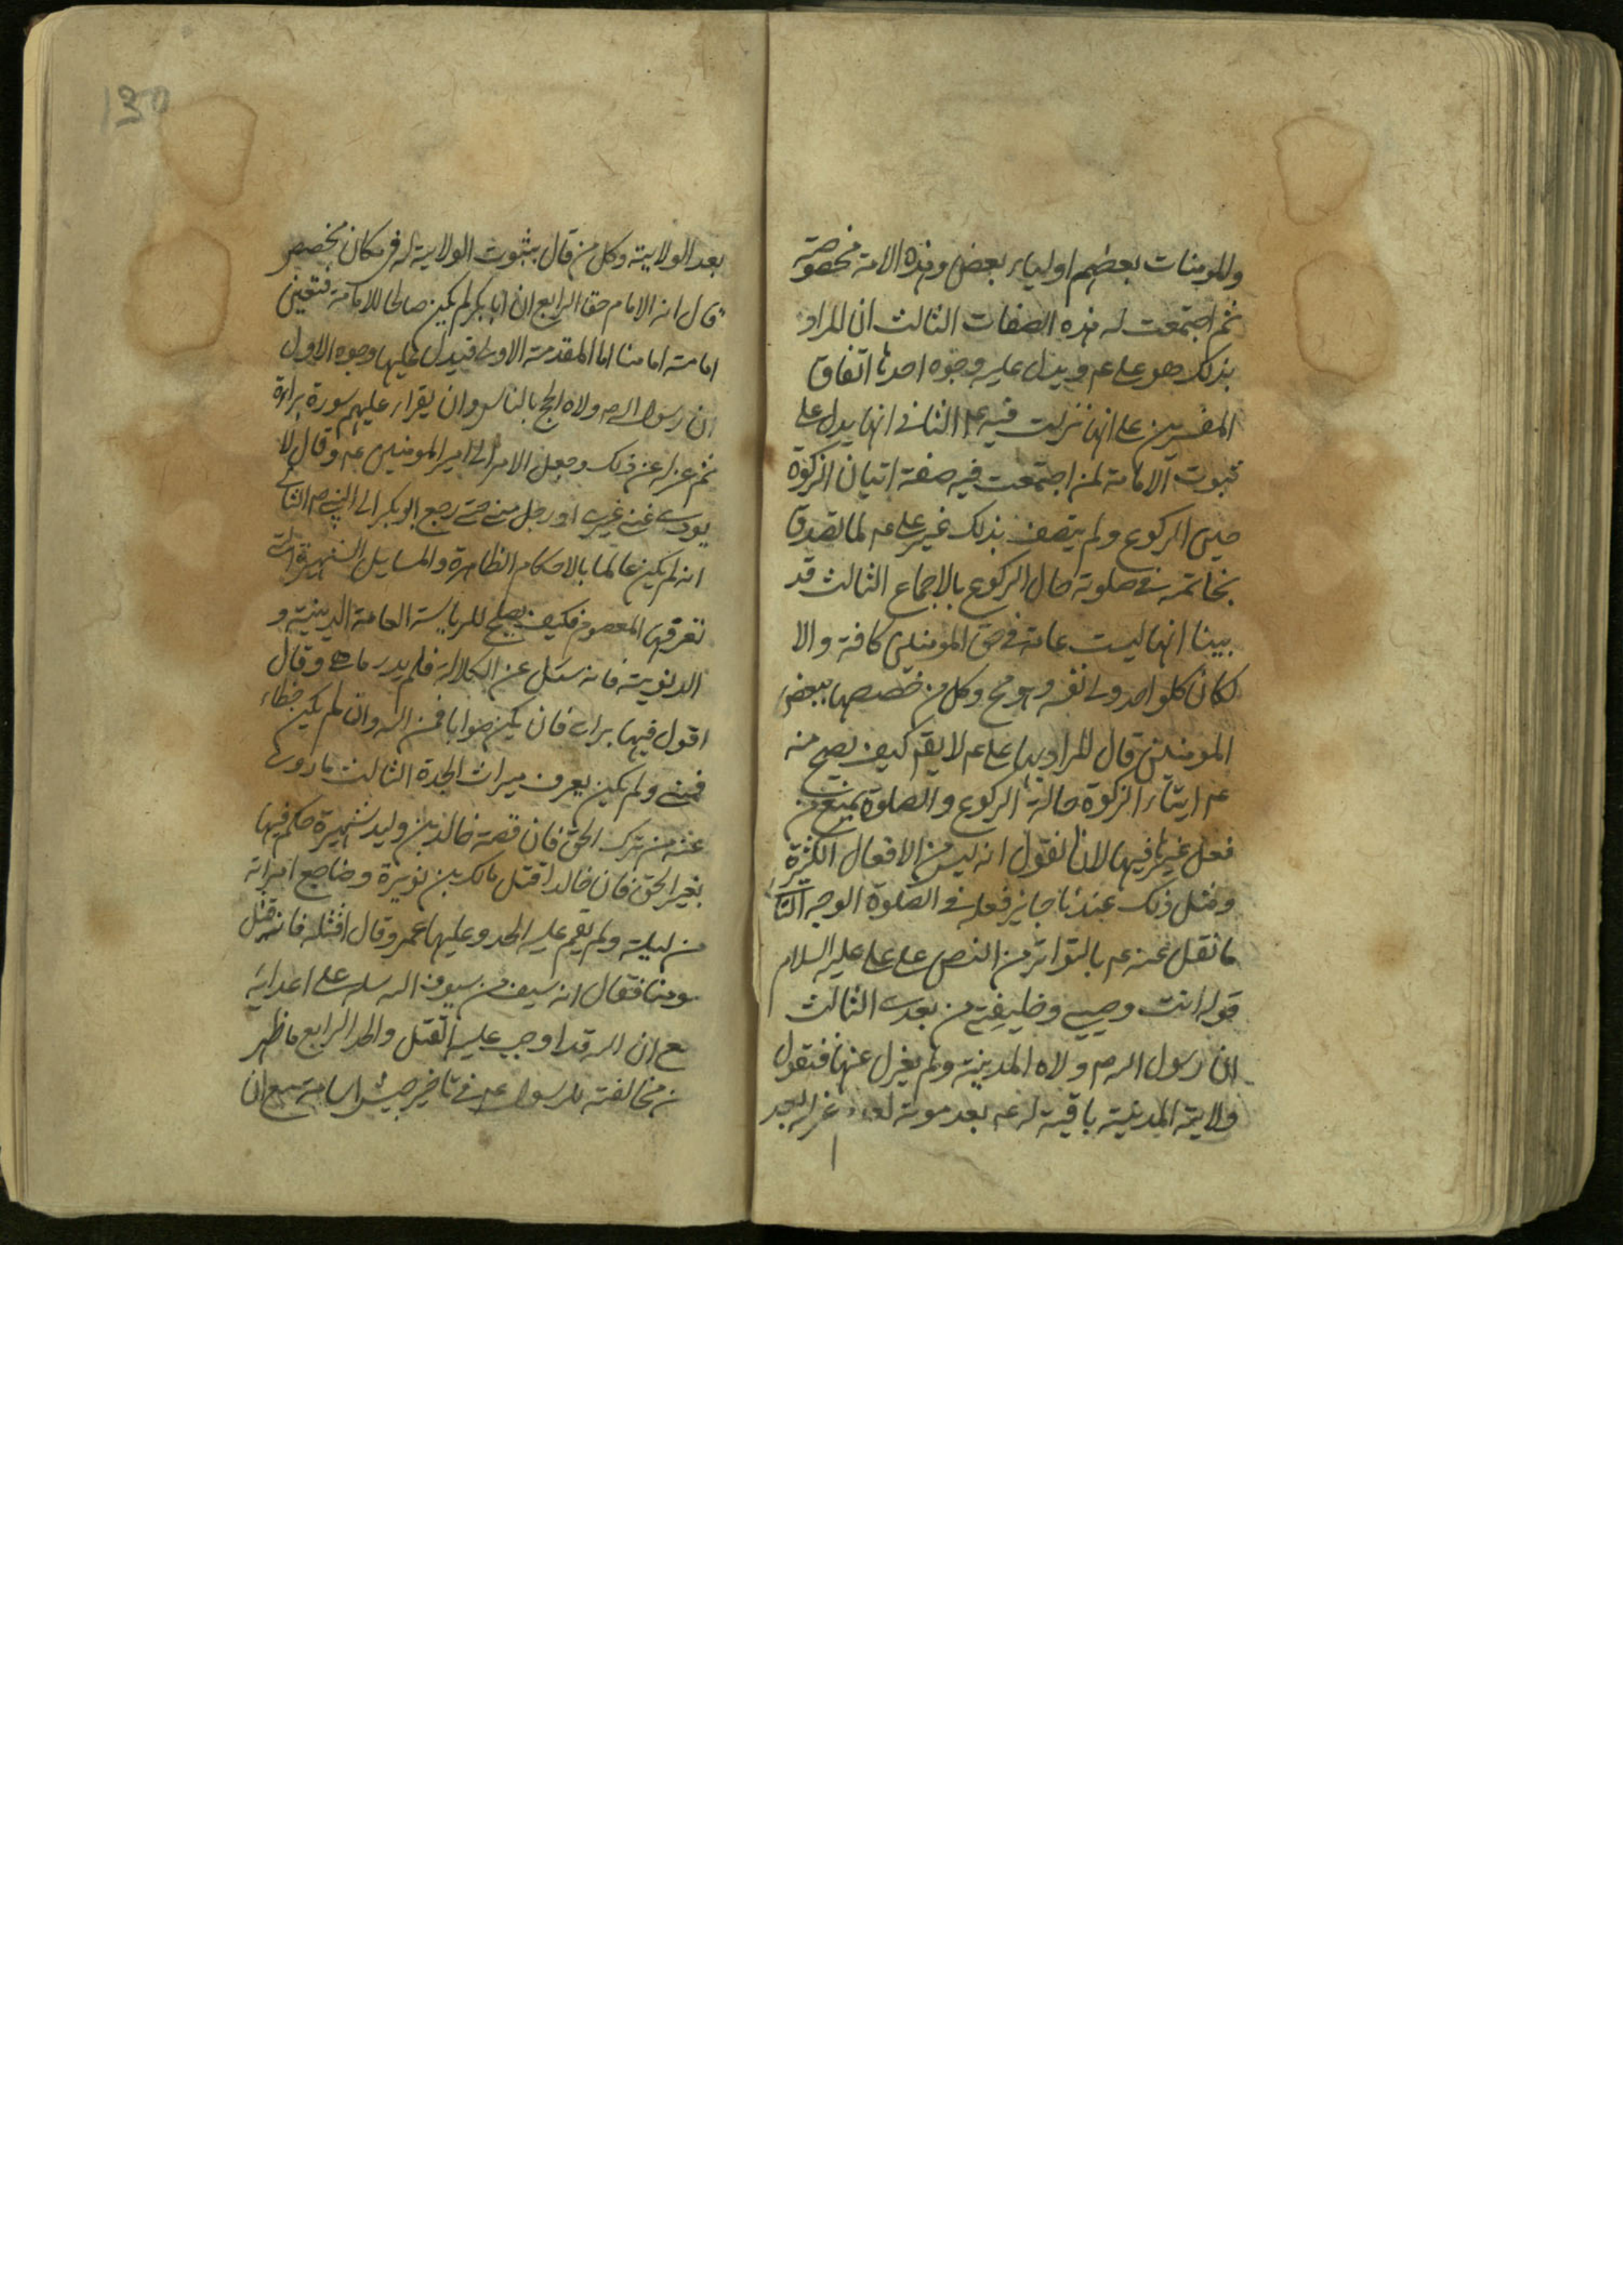 والمومنات بعضهم اولياء بعض وهذه الامة مخصوصة
ثم اجتمعت له هذه الصفات الثالث ان المراد
بذلك هو على عم ويدل عليه وجوه احدها اتفاق
المفسرين على انها نزلت فيه عم الثانى انها يدل على
ثبوت الامامة لمن اجتمعت فيه صفة اتيان الزكوة
حين الركوع ولم يتصف بذلك غير على عم لما تصدق
بخاتمه فى صلوته حال الركوع بالاجماع الثالث قد
بينا انها ليست عامة فى حق المومنين كافة والا
لكان كلواحد ولى نفسه وهو مح وكل من خصصها ببعض
المومنين قال المراد بها على عم لا يقم كيف يصح منه
عم ايتاء الزكوة حالة الركوع والصلوة يمنع من
فعل غيرها فيها لانا نقول انه ليس من الافعال الكثيرة
ومثل ذلك عندنا جايز فعله فى الصلوة الوجه الثانى
ما نقل عنه عم بالتواتر من النص على على عليه السلام
قوله انت وصيى وخليفتى من بعدى الثالث
ان رسول الله ص ولاه المدينة ولم يعزل عنها فتقول
ولاية المدينة باقية له عم بعد موته لعدم عزله بعد
130
بعد الولاية وكل من قال بثبوت الولاية له فى مكان مخصص
قال انه الامام حقا الرابع ان ابا بكر لم يكن صالحا للامامة فتعين
امامة امامنا اما المقدمة الاولى فيدل عليها وجوه الاول
ان رسول الله ص ولاه الحج بالناس وان يقراء عليهم سورة براءة
ثم عزله عن ذلك وجعل الامر الى امير المومنين عم وقال لا
يودى عنى غيرى او رجل منى حتى رجع ابو بكر الى النبى ص الثانى
انه لم يكن عالما بالاحكام الظاهرة والمسايل الشهيرة التى
تعرفها المعصوم فكيف يصلح للرياسة العامة الدينية و
الدنوية فانه سئل عن الكلالة فلم يدر ما هى وقال
اقول فيها براى فان يكن صوابا فمن الله وان لم يكن خطاء
فمنى ولم يكن يعرف ميراث الجدة الثالث ما روى
عنه من ترك الحق فان قصة خالد بن وليد شهيرة حكم فيها
بغير الحق فان خالدا قتل مالك بن نويرة وضاجع امراته
من ليلته ولم يقم عليه الحد وعليها عمر وقال اقتله فانه قتل
مومنا فقال انه سيف من سيوف الله سله على اعدايه
مع ان الله قد اوجب عليه القتل والحد الرابع ما ظهر
من مخالفته للرسول عم فى تاخير جيش اسامة مع ان